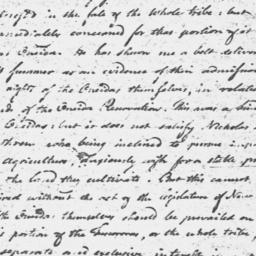 in the sale of the whole tribe; but
immediately concerned for that portion of it
Oneida. He has shown me a belt deliver
summer as an evidence of their admission
rights of the Oneidas themselves, in relation
of the Oneida Reservation. This was a
Oneidas: but it does not satisfy Nicholas
who, being inclined to pursue
Agriculture, anxiously wish for a stable
the land they cultivate. But this cannot
without the act of the legislature of New
Oneidas themselves should be prevailed on
portion of the Tuscaroras, or the whole tribe,
separate and exclusive interest